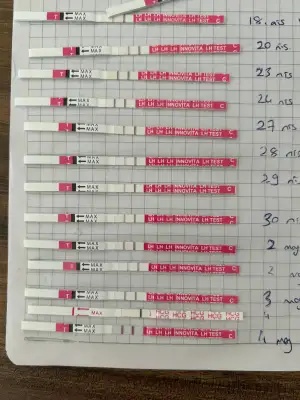 MAX LH LH LH INNOVITA LH TEST C 18. nis
T MAX LH LH LH INNOVITA LH TEST C 20 nis
T MAX LH LH LH INNOVITA LH TEST C 23 nis
T MAX LH LH LH INNOVITA LH TEST C 24 nis
T MAX LH LH LH INNOVITA LH TEST C 27 nis
T MAX LH LH LH INNOVITA LH TEST C 28 nis
T MAX LH LH LH INNOVITA LH TEST C 29 nis
T MAX LH LH LH INNOVITA LH TEST C 30 nis
T MAX LH LH LH INNOVITA LH TEST C 2 may
T MAX LH LH LH INNOVITA LH TEST C
T MAX LH LH LH INNOVITA LH TEST C 3 may
MAX HCG HCG HCG 4
T MAX LH LH LH INNOVITA LH TEST C 4 may